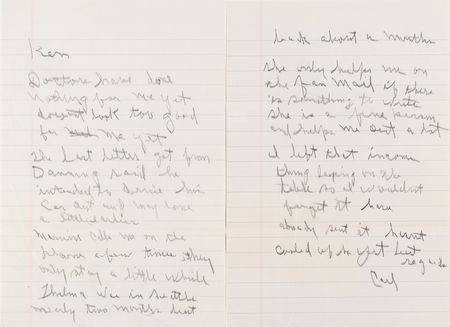 Ken
Doctors have done
nothing for me yet
doesn't look too good
for me yet
The last letter I got from
said he
intended to drive his
car out and may have
a little
on the
phone a few times they
only stay a little while
Thelma was in Seattle
nearly two months but
back about a month
She only helps me on
the fan mail if there
is something to write
She is a fine person
and helps me out a lot
I left that income
thing laying on the
table so I wouldn't
forget it
already sent it
up yet best
regards
Carl